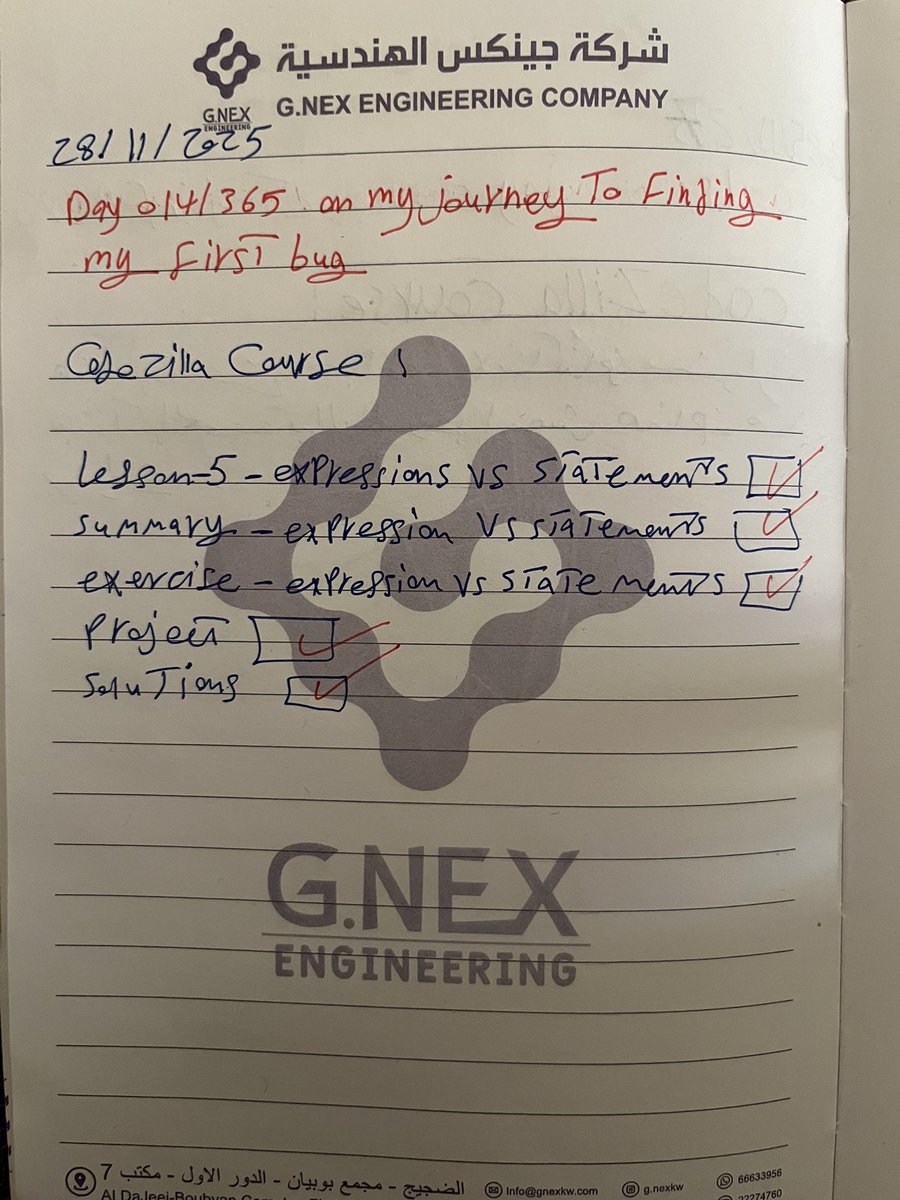 شركة جينكس الهندسية
G.NEX ENGINEERING COMPANY
G.NEX
ENGINEERING
28/11/2025
Day 014/365 on my journey To Finding
my first bug
Codezilla Course :
Lesson-5 - expressions vs statements
summary - expression vs statements
exercise - expression vs statements
Project
Solutions
G.NEX
ENGINEERING
الضجيج - مجمع بوبيان - الدور الاول - مكتب 7
Info@gnexkw.com
g.nexkw
66633956
22274760